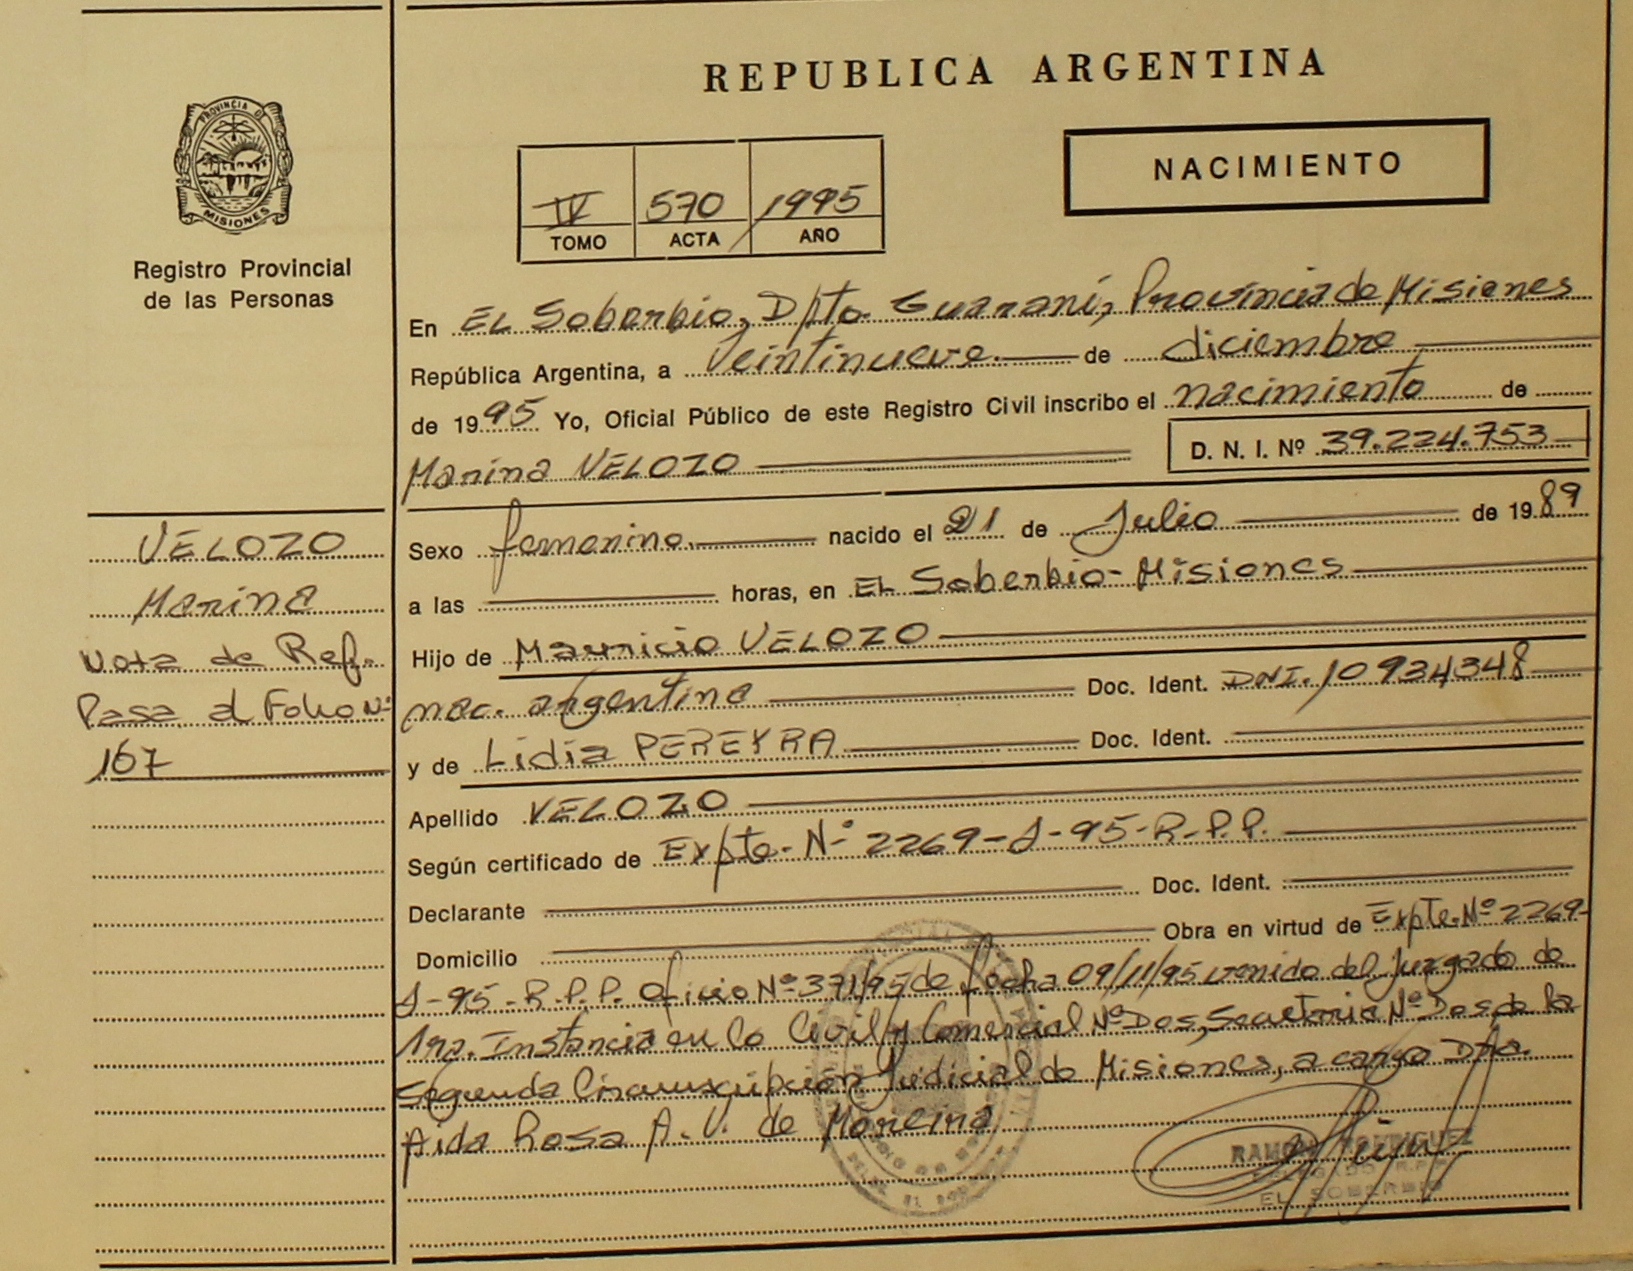 REPUBLICA ARGENTINA
PROVINCIA DE
MISIONES
Registro Provincial
de las Personas
IV 570 1995
TOMO ACTA AÑO
NACIMIENTO
En EL Soberbio, Dpto. Guaraní, Provincia de Misiones
República Argentina, a veintinueve. de diciembre
de 1995 Yo, Oficial Público de este Registro Civil inscribo el nacimiento de
Marina VELOZO D. N. I. Nº 39.224.753
VELOZO
Marina
Nota de Ref.
Pasa al Folio Nº
167
Sexo femenino. nacido el 21 de Julio de 1989
a las horas, en EL Soberbio-Misiones
Hijo de Mauricio VELOZO
nac. argentina Doc. Ident. DNI. 10934348
y de Lidia PEREYRA Doc. Ident.
Apellido VELOZO
Según certificado de Expte. Nº 2269-J-95-R.P.P.
Declarante Doc. Ident.
Domicilio Obra en virtud de Expte. Nº 2269-
J-95-R.P.P. Oficio Nº 371/95 de fecha 09/11/95 venido del Juzgado de
1ra. Instancia en lo Civil y Comercial Nº Dos, Secretaria Nº Dos de la
Segunda Circunscripción Judicial de Misiones, a cargo Dra.
Aida Rosa A. V. de Moreira
RAMON RODRIGUEZ
EL SOBERBIO